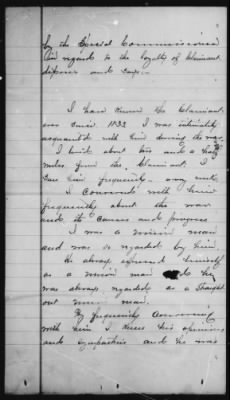 by the Special Commissioner
in regard to the loyalty of Claimant
deposes and says
I have known the Claimant
ever since 1833 I was intimately
acquainted with him during the war
I lived about two and a half
miles from the Claimant, I
saw him frequently - every week
I conversed with him
frequently about the war
and its causes and progress
I was a union man
and was so regarded by him.
He always expressed himself
as a union man and he
was always regarded as a straight
out union man.
By frequently conversing
with him I knew his opinions
and sympathies and he was